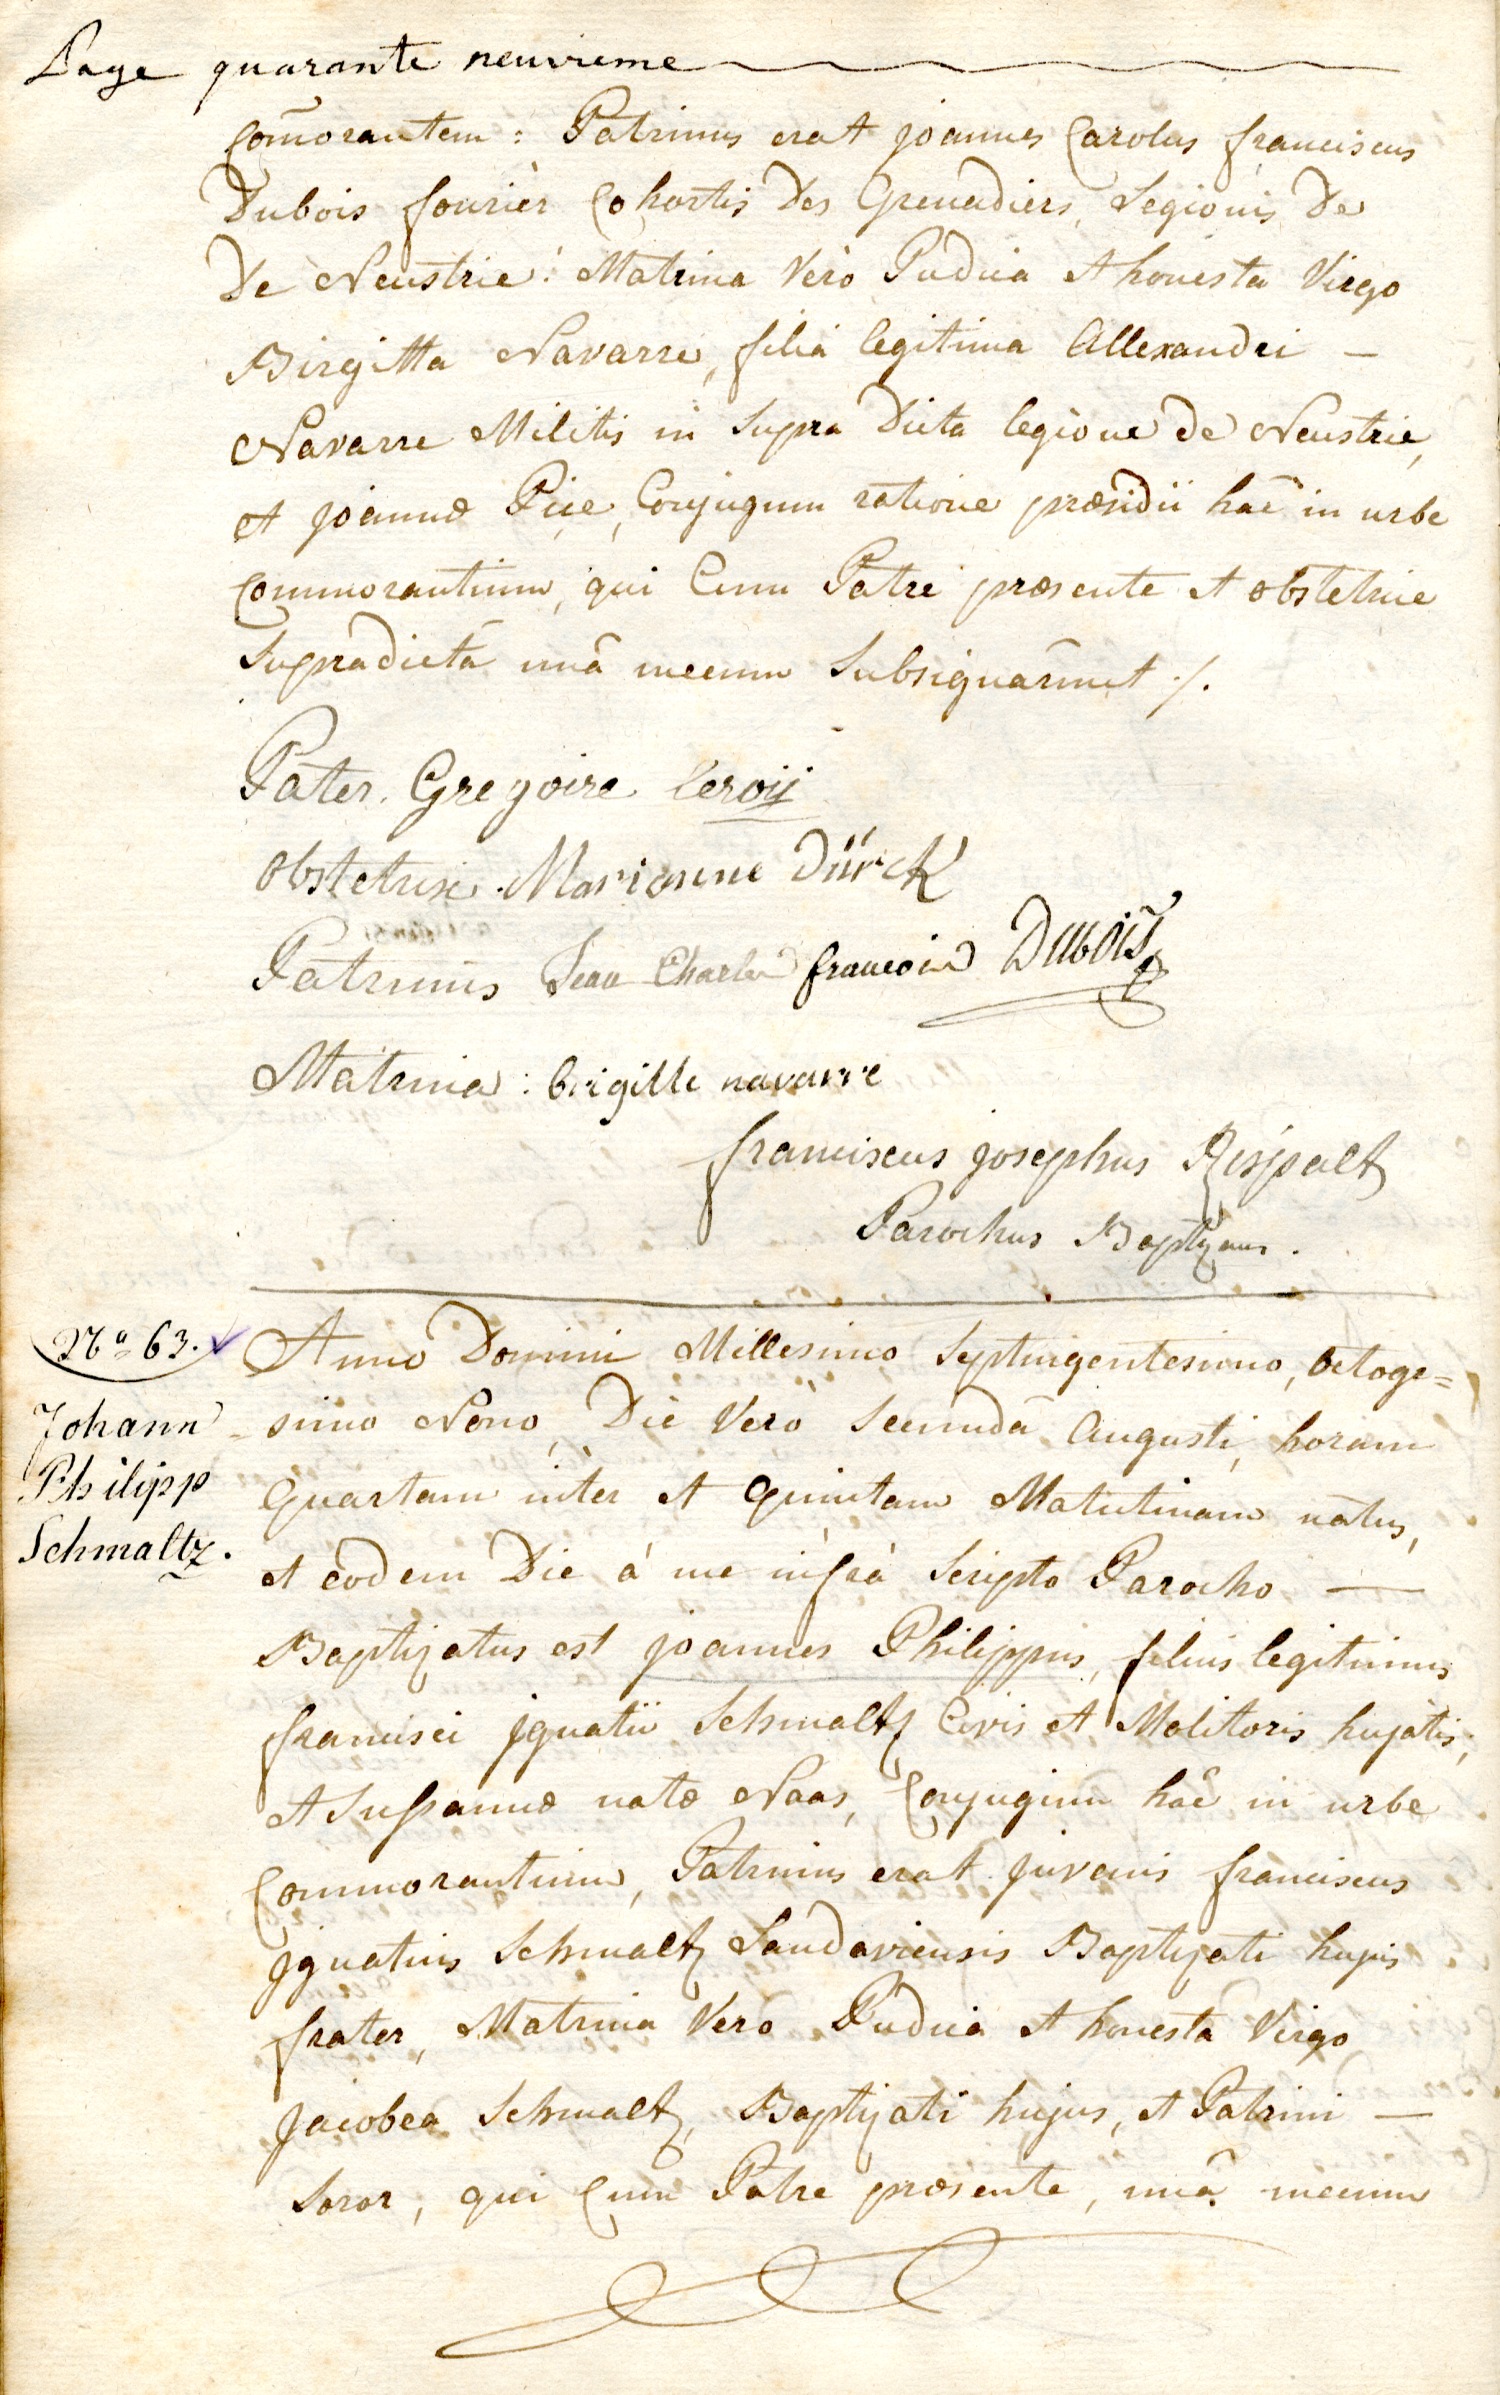 Page quarante neuvieme
com̃orantem : Patrinus erat joannes Carolus franciscus
Dubois fourier Cohortis Des Grenadiers, Legionis De
De Neustrie : Matrina Verò Pudica et honesta Virgo
Birgitta Navarre, filia legitima Allexandri —
Navarre Militis in Supra Dicta legione de Neustrie,
et joannæ Pice, Conjugum ratione præsidii hac in urbe
Commorantium, qui Cum Patre præsente et obstetrice
Supradictâ unâ mecum Subsignârunt ./.
Pater. Gregoire leroij
obstetrix. Marionne Dürck
Patrinus Jean Charles francois DUBOIS
Matrina : brigitte navarre
franciscus josephus Rispalt
Parochus Baptizans.
Nº 63.
Johann
Philipp
Schmaltz.
Anno Domini Millesimo Septingentesimo, octoge=
simo Nono, Die Verò Secundâ Augusti, horam
Quartam inter et Quintam Matutinam natus,
et eodem Die à me infrà Scripto Parocho —
Baptizatus est joannes Philippus, filius legitimus
francisci jgnatii Schmaltz Civis et Molitoris hujatis,
et Sussannæ natæ Naas, Conjugum hâc in urbe
Commorantium, Patrinus erat juvenis franciscus
jgnatius Schmaltz Landaviensis Baptizati hujus
frater, Matrina Verò Pudica et honesta Virgo
Jacobea Schmaltz, Baptizati hujus, et Patrini —
Soror, qui Cum Patre præsente, unâ mecum